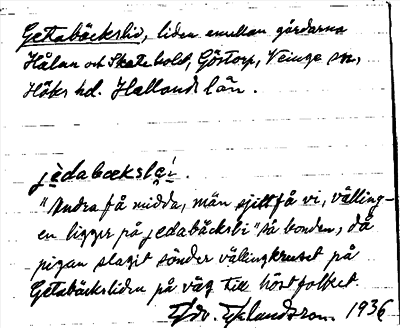 Getabäcksliv, liden emellan gårdarna
Hålan och Skatebolet, Göstorp, Veinge sn,
Höks hd. Hallands län.
jèdabæksle̯í.
"Andra få midda, män sjitt få vi, välling-
en ligger på jedabäcksli" sa bonden, då
pigan slagit sönder vällingkruset på
Getabäcksliden på väg till höstfolket.
1936